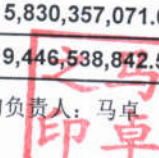 5,830,357,071.
9,446,538,842.5
负责人：马卓
马卓之印